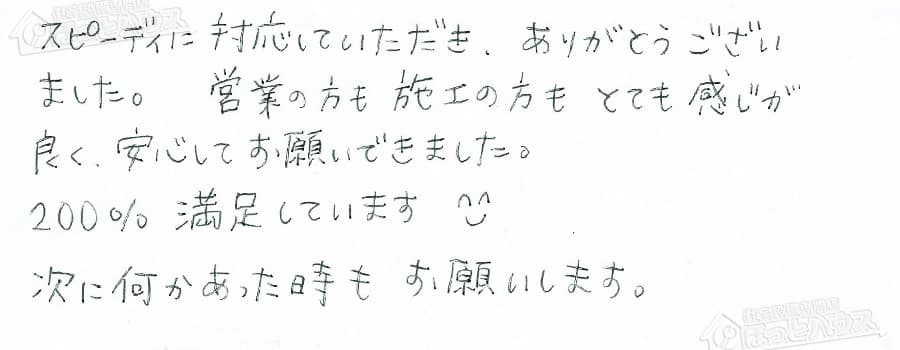 スピーディに対応していただき、ありがとうござい
ました。 営業の方も施工の方もとても感じが
良く、安心してお願いできました。
200% 満足しています ^^
次に何かあった時も お願いします。
ほっとハウス